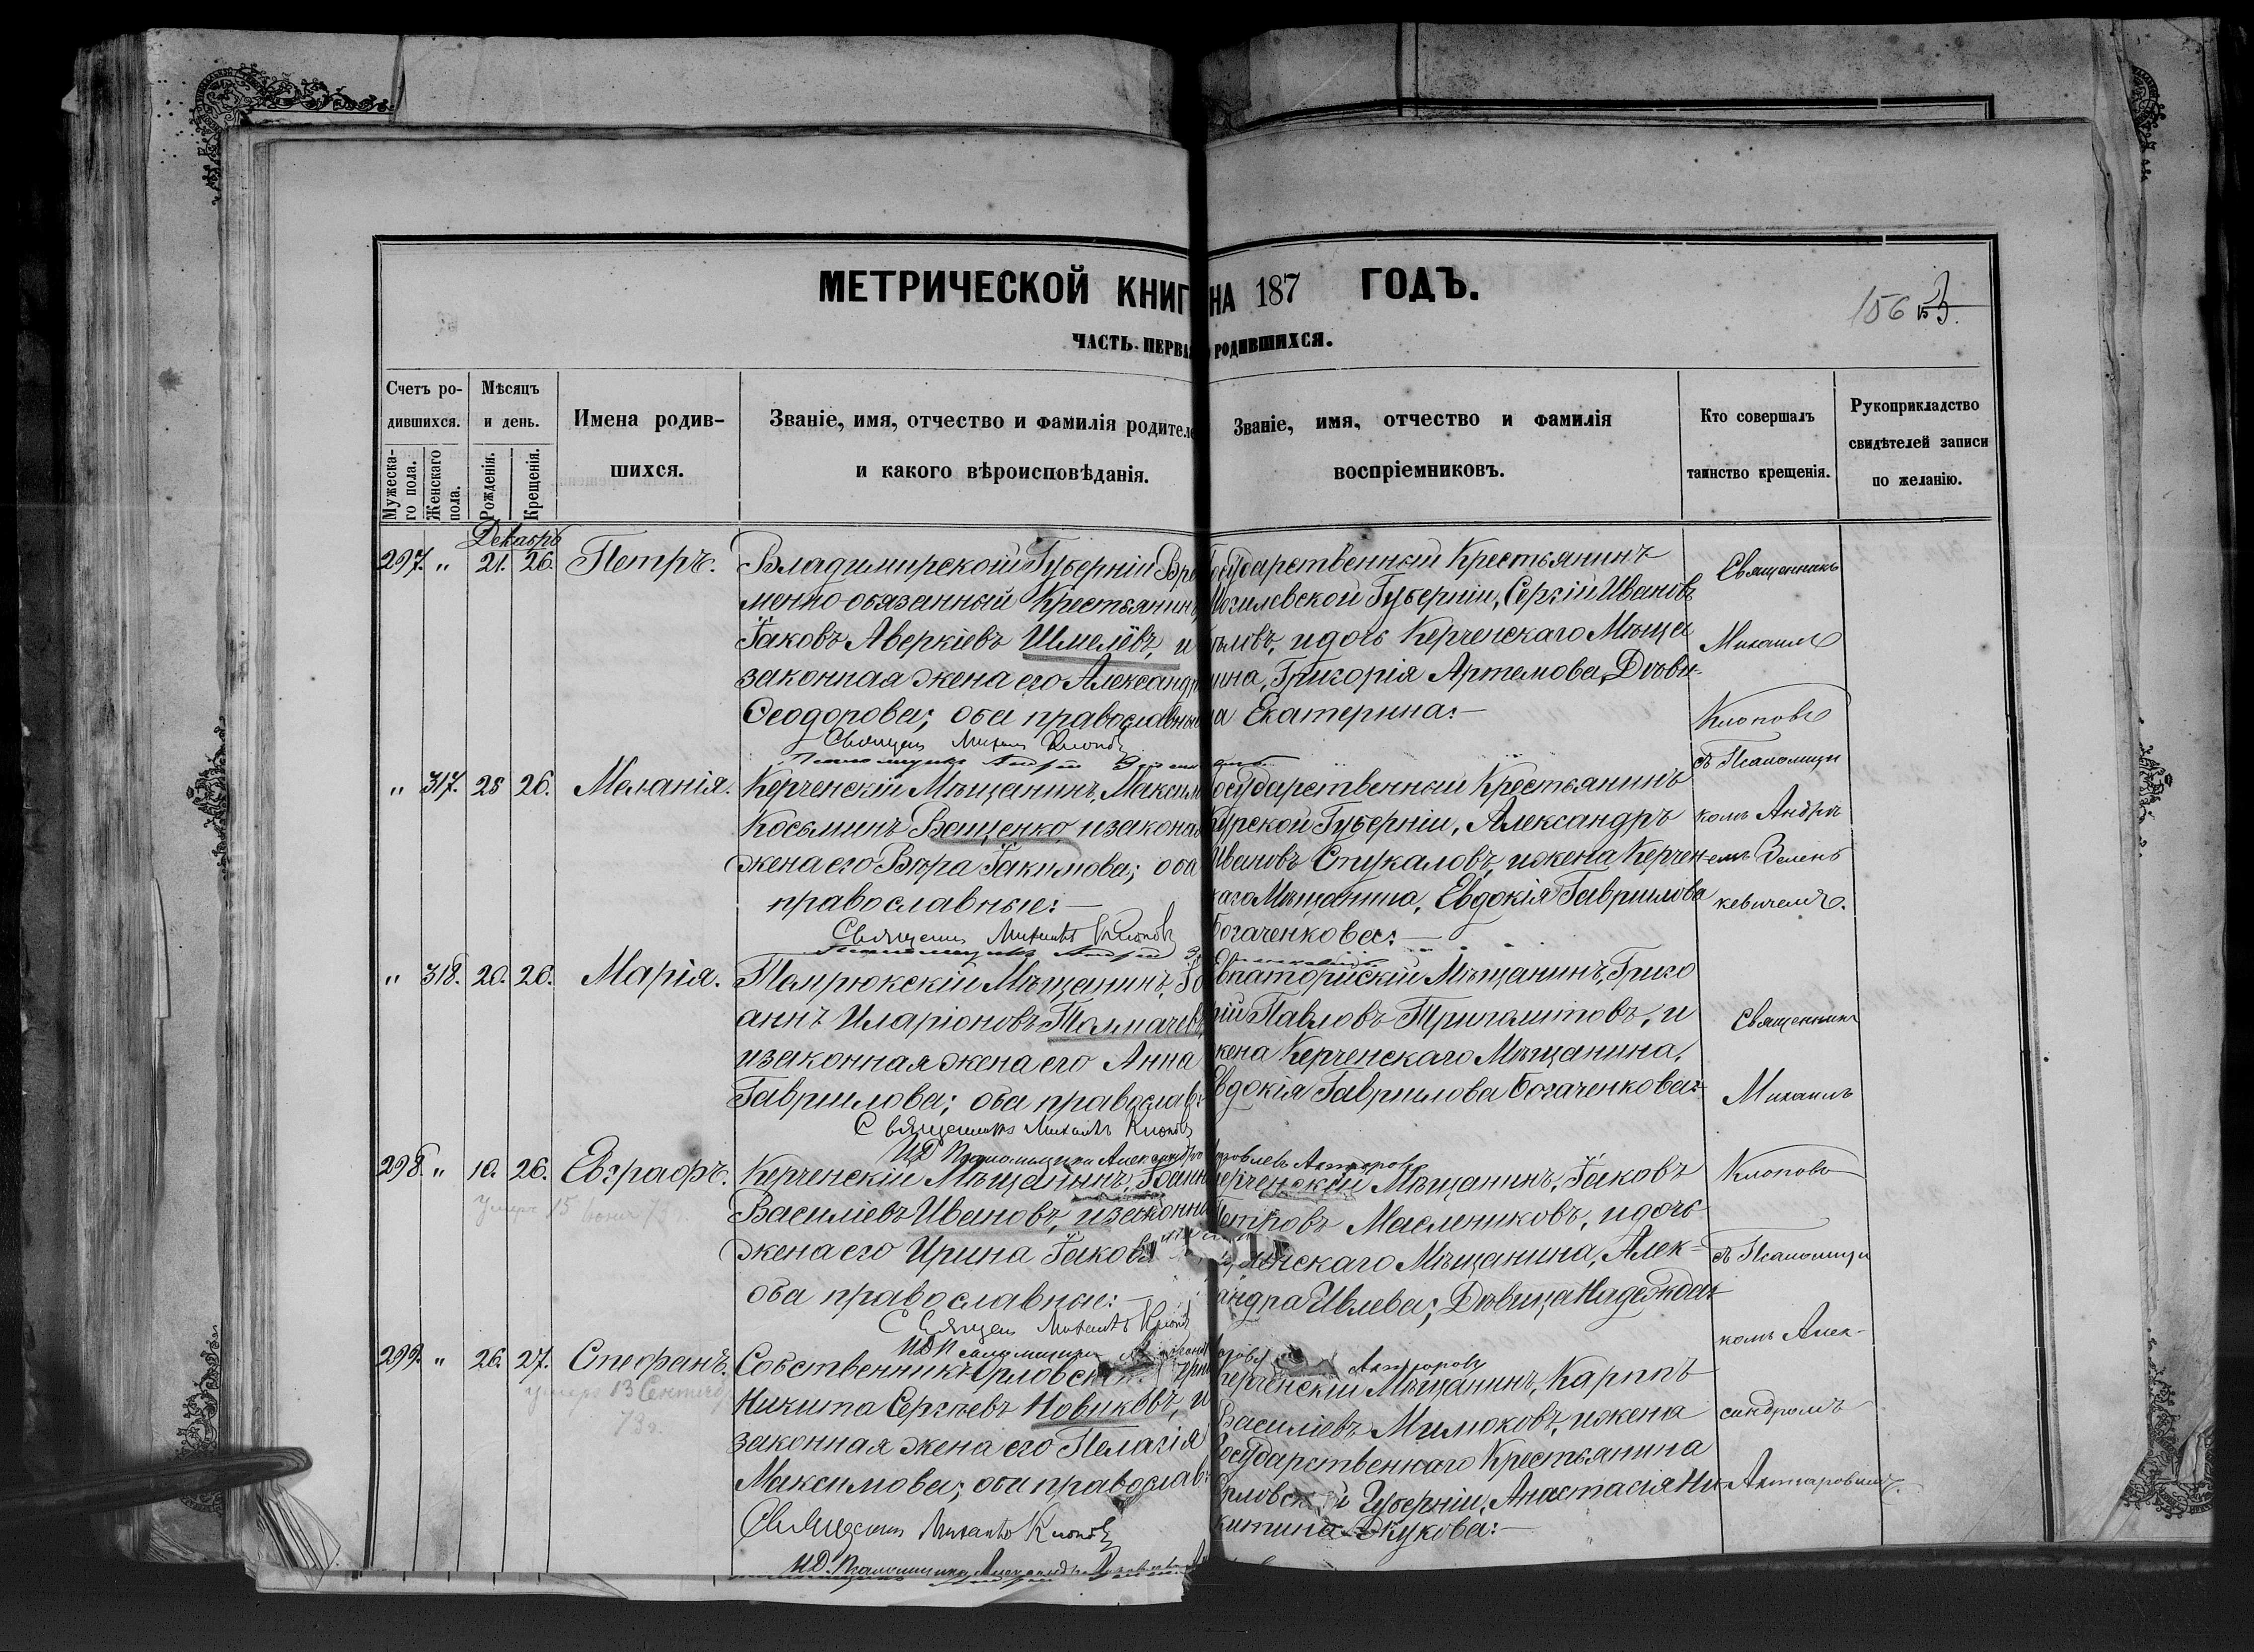 МЕТРИЧЕСКОЙ КНИГ НА 187 ГОДЪ.
156 153.
ЧАСТЬ ПЕРВАЯ О РОДИВШИХСЯ.
Счетъ ро-
дившихся.
Мужеска-
го пола.
Женскаго
пола.
Мѣсяцъ
и день.
Рожденія.
Крещенія.
Имена родив-
шихся.
Званіе, имя, отчество и фамилія родителе
и какого вѣроисповѣданія.
Званіе, имя, отчество и фамилія
воспріемниковъ.
Кто совершалъ
таинство крещенія.
Рукоприкладство
свидѣтелей записи
по желанію.
Декабрь
297. " 21. 26. Петръ.
Владимирской Губерніи Вре
менно-обязанный Крестьянинъ
Іаковъ Аверкіевъ Шмелёвъ, и
законная жена его Александра
Ѳеодорова; оба православные
Священ Михаилъ Клоповъ
Государственный Крестьянинъ
Могилевской Губерніи, Сергій Ивановъ
и дочь Керченскаго Мѣща
нина, Григорія Артемова, Дѣви-
ца Екатерина:-
Священникъ
Михаилъ
Клоповъ
съ Псаломщи
комъ Андре
емъ Зелен
кевичемъ.
" 317. 25 26. Меланія.
Керченскій Мѣщанинъ, Максимъ
Косьминъ Ващенко, и законная
жена его Вѣра Іакимова; оба
православные:-
Священ Михаилъ Клоповъ
Псаломщикъ Андрей
Государственный Крестьянинъ
Курской Губерніи, Александръ
Ивановъ Стукаловъ, и жена Керчен-
скаго Мѣщанина, Евдокія Гаврилова
Богаченкова:-
" 318. 20. 26. Марія.
Темрюкскій Мѣщанинъ, Іо
аннъ Иларіоновъ Толмачевъ,
и законная жена его Анна
Гавриилова; оба православ:
Священникъ Михаилъ Клоповъ
ИД Псаломщика Александръ Яковлевъ Актаровъ
Евпаторійскій Мѣщанинъ, Григо
рій Павловъ и
жена Керченскаго Мѣщанина,
Евдокія Гавриилова Богаченкова:-
Священникъ
Михаилъ
Клоповъ
съ Псаломщи
комъ Алек-
сандромъ
Актаровымъ.
298. " 10. 26. Евграфъ.
умеръ 15 Іюня 73 г.
Керченскій Мѣщанинъ, Іоаннъ
Василіевъ Ивановъ, и законная
жена его Ирина Іаков
оба православные:-
Священ Михаилъ Клоповъ
ИД Псаломщика Актаровъ
Керченскій Мѣщанинъ, Іаковъ
Петровъ Маслениковъ, и дочь
Керченскаго Мѣщанина, Алек-
сандра Ивлева; Дѣвица Надежда:-
299. " 26. 27. Стефанъ.
умеръ 13 Сентяб
73 г.
Собственникъ Орловской
Никита Сергѣевъ Новиковъ, и
законная жена его Пелагія
Максимова; оба православ:
Священ Михаилъ Клоповъ
ИД. Псаломщика Александръ
Керченскій Мѣщанинъ, Карпъ
Василіевъ Милоковъ, и жена
Государственнаго Крестьянина
Орловской Губерніи, Анастасія Ни
китина Жукова:-